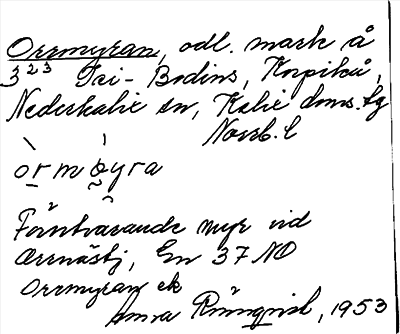 Orrmyran, odl. mark å
3²³ Tri-Bodins, Korpikå,
Nederkalix sn, Kalix doms. lg
Norrb. l
òrmø̀yra
Förutvarande myr vid
Orrnäsbj, En 37 NO
Orrmyran ek
Anna Rönnqvist, 1953